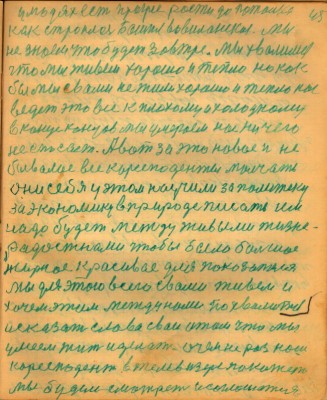 и людях есть прогре рости до потолка 48
как строилося башня вовилонская. Мы
не знаем что будет завтре. Мы хвалимся
что мы живем хорошо и тепло но как
бы мы с вами не жили хорошо и тепло нас
ведет это все к плохому и холодному
в конце концов мы умераем нас ничего
не спасает. А вот за это новое и не
бывалое все коресподенты молчать
они себя у этом научили за политеку
за экономику в природе писать им
надо будет между живыми жизне
радостными чтобы было большое
жирное красивае для показания
мы для этого всего с вами живем и
хочем этим между нами похвалится
и сказать слова свои о том что мы
умеем жит и делат. очередной раз наш
коресподент в телевизоре покажет
мы будем смотрет и соглошатся